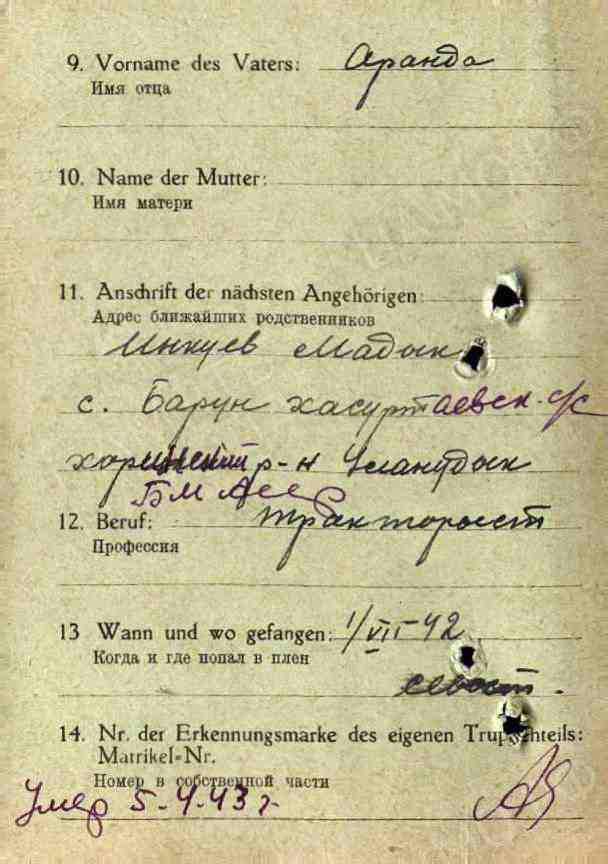 9. Vorname des Vaters: Аранда
Имя отца
10. Name der Mutter:
Имя матери
11. Anschrift der nächsten Angehörigen:
Адрес ближайших родственников
Инкуев Мадык
с. Барун хасуртаевск. с/с
хоринский р-н Уланудык
БМ АССР
12. Beruf: тракторыст
Профессия
13 Wann und wo gefangen: 1/VII-42
Когда и где попал в плен
севаст.
14. Nr. der Erkennungsmarke des eigenen Truppenteils:
Matrikel-Nr.
Номер в собственной части
Умер 5-4-43 г.